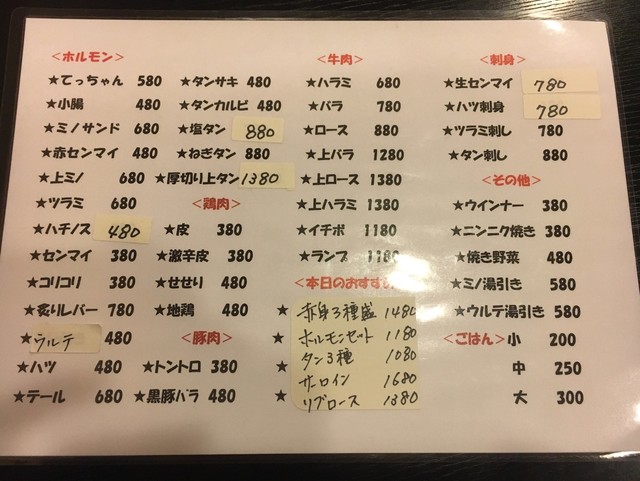 <ホルモン>
★てっちゃん 580
★小腸 480
★ミノサンド 680
★赤センマイ 480
★上ミノ 680
★ツラミ 680
★ハチノス 480
★センマイ 380
★コリコリ 380
★炙りレバー 780
★ウルテ 480
★ハツ 480
★テール 680
★タンサキ 480
★タンカルビ 480
★塩タン 880
★ねぎタン 880
★厚切り上タン 1380
<鶏肉>
★皮 380
★激辛皮 380
★せせり 480
★地鶏 480
<豚肉>
★トントロ 380
★黒豚バラ 480
<牛肉>
★ハラミ 680
★バラ 780
★ロース 880
★上バラ 1280
★上ロース 1380
★上ハラミ 1380
★イチボ 1180
★ランプ 1180
<本日のおすすめ
★ 赤身3種盛 1480
★ ホルモンセット 1180
★ タン3種 1080
★ サーロイン 1680
★ リブロース 1380
<刺身>
★生センマイ 780
★ハツ刺身 780
★ツラミ刺し 780
★タン刺し 880
<その他>
★ウインナー 380
★ニンニク焼き 380
★焼き野菜 480
★ミノ湯引き 580
★ウルテ湯引き 580
<ごはん> 小 200
中 250
大 300